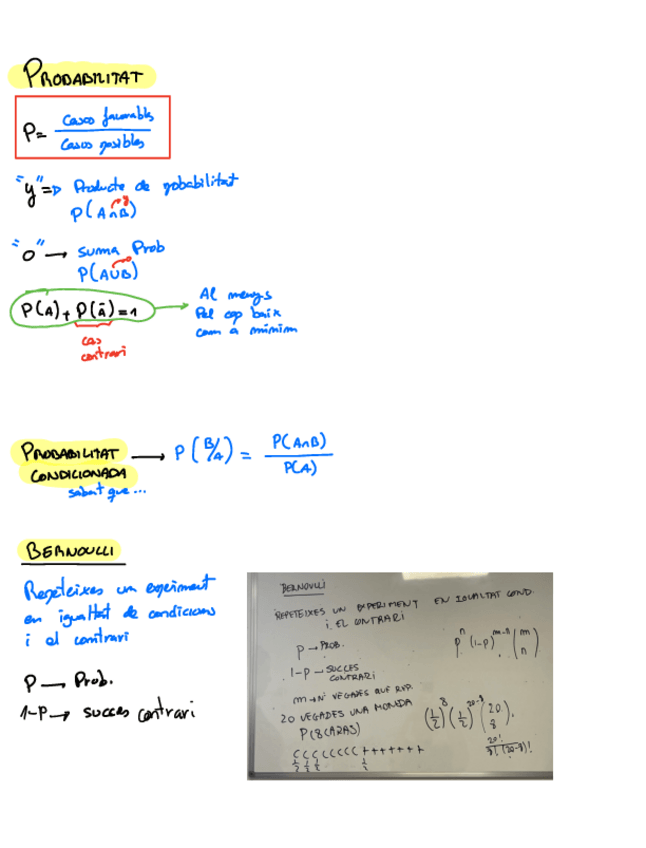 PROBABILITAT
P= casos favorables / casos posibles
"y" => Producte de probabilitat
y
P(A∩B)
"o" → suma Prob
o
P(A∪B)
P(A) + P(ā) = 1 → Al menys
Pel cap baix
com a mínim
cas
contrari
PROBABILITAT → P(B/A) = P(A∩B) / P(A)
CONDICIONADA
sabent que ...
BERNOULLI
Repeteixes un experiment
en igualtat de condicions
i el contrari
P → Prob.
1-P → succes contrari
BERNOULLI
REPETEIXES UN EXPERIMENT EN IGUALTAT COND.
i EL CONTRARI
P → PROB.
p^n (1-p)^m-n (m n)
1-P → SUCCES
CONTRARI
m → Nº VEGADES QUE REP.
20 VEGADES UNA MONEDA
P(8 CARAS)
(1/2)^8 (1/2)^20-8 (20 8).
20! / 8! (20-8)!
C C C C C C C C + + + + + + +
1/2 1/2 1/2 1/2